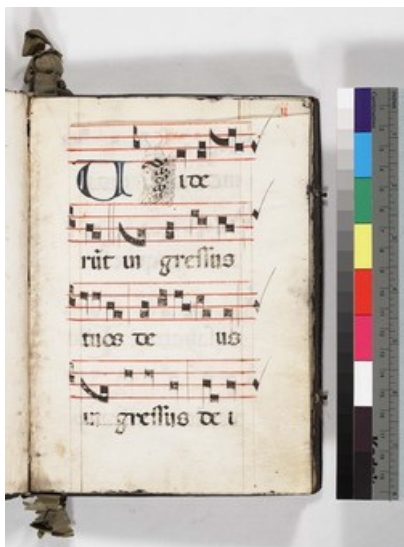 Uide
rūt in gressus
tuos de us
in gressus de i